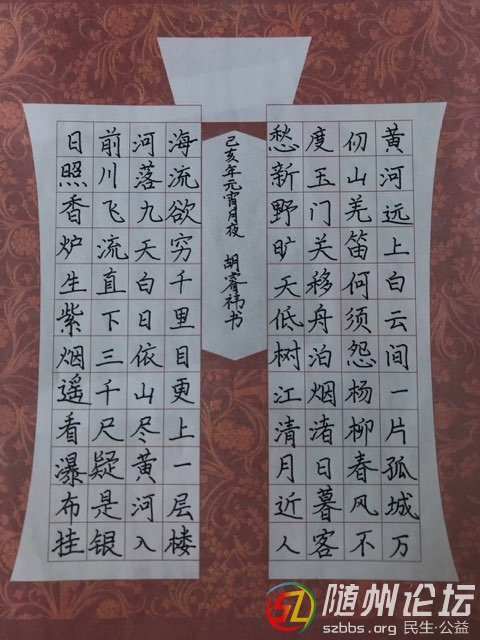 黄河远上白云间一片孤城万
仞山羌笛何须怨杨柳春风不
度玉门关移舟泊烟渚日暮客
愁新野旷天低树江清月近人
日照香炉生紫烟遥看瀑布挂
前川飞流直下三千尺疑是银
河落九天白日依山尽黄河入
海流欲穷千里目更上一层楼
己亥年元宵月夜 胡睿祎书
随州论坛
szbbs.org 民生·公益